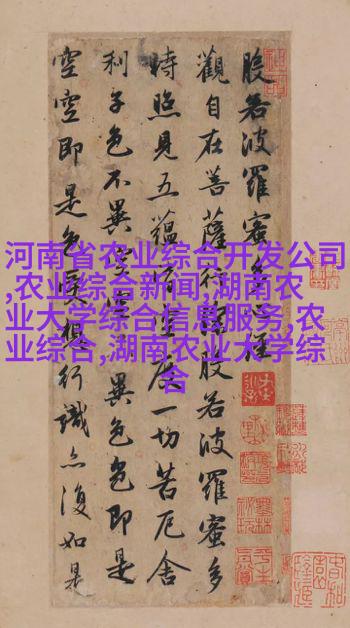 般若波羅蜜多心經
觀自在菩薩行深般若波羅蜜多
時照見五蘊皆空度一切苦厄舍
利子色不異空空不異色色即是
空空即是色受想行識亦復如是
河南省农业综合开发公司
,农业综合新闻,湖南农
业大学综合信息服务,农
业综合,湖南农业大学综
合